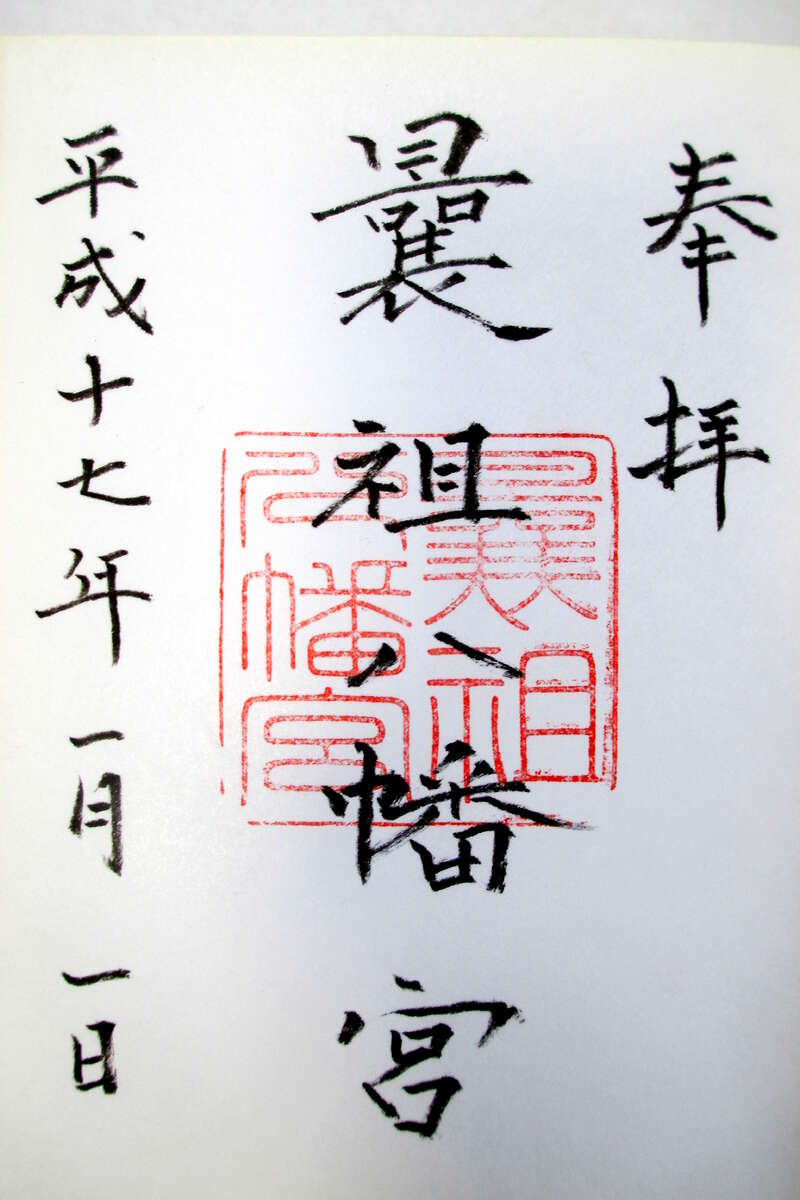 奉拝
曩祖八幡宮
平成十七年一月一日
曩祖
八幡宮